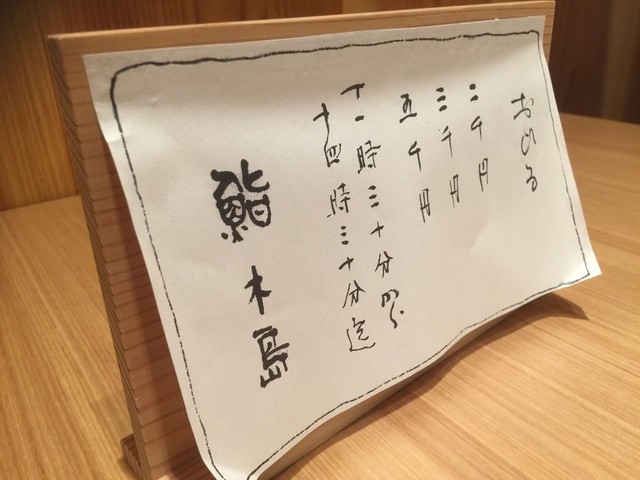 おひる
二千円
三千円
五千円
十一時三十分から
十四時三十分迄
鮨 木島